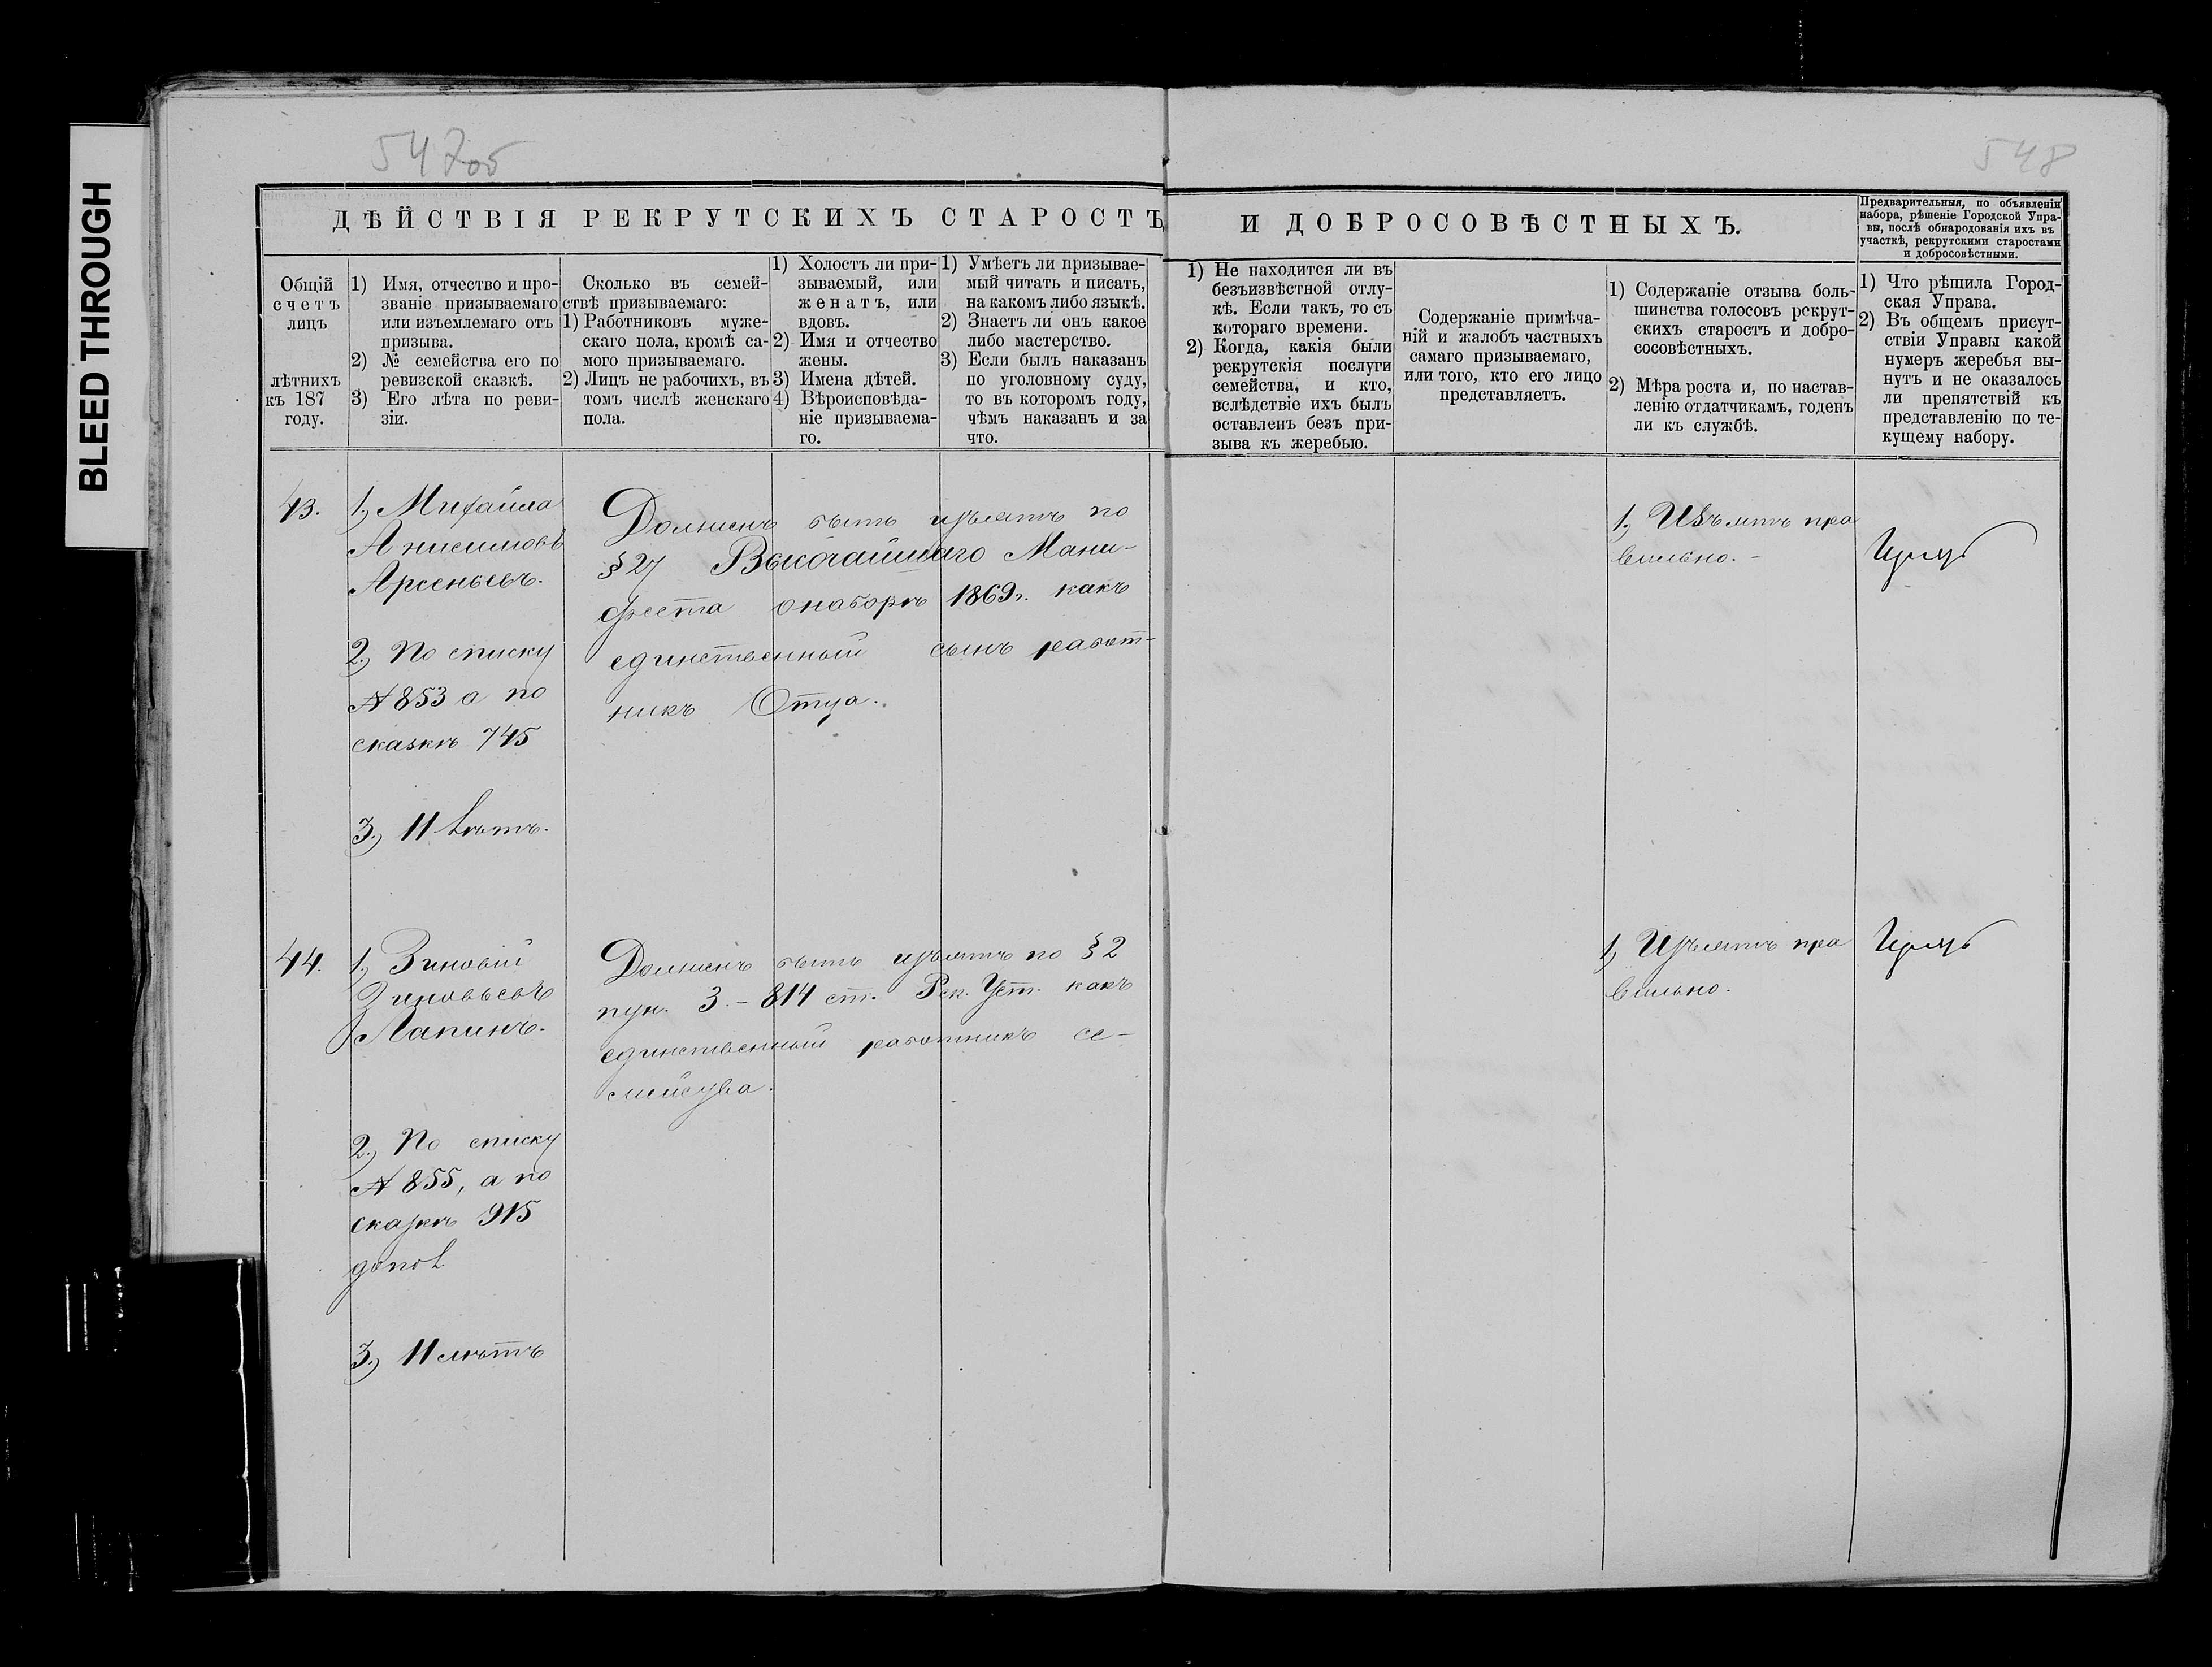 BLEED THROUGH
547об
548
ДѢЙСТВІЯ РЕКРУТСКИХЪ СТАРОСТЪ
И ДОБРОСОВѢСТНЫХЪ.
Предварительныя, по объявленіи
набора, рѣшеніе Городской Упра-
вы, послѣ обнародованія ихъ въ
участкѣ, рекрутскими старостами
и добросовѣстными.
Общій
счетъ
лицъ
лѣтнихъ
къ 187
году.
1) Имя, отчество и про-
званіе призываемаго
или изъемлемаго отъ
призыва.
2) № семейства его по
ревизской сказкѣ.
3) Его лѣта по реви-
зіи.
Сколько въ семей-
ствѣ призываемаго:
1) Работниковъ муже-
скаго пола, кромѣ са-
мого призываемаго.
2) Лицъ не рабочихъ, въ
томъ числѣ женскаго
пола.
1) Холостъ ли при-
зываемый, или
женатъ, или
вдовъ.
2) Имя и отчество
жены.
3) Имена дѣтей.
4) Вѣроисповѣда-
ніе призываема-
го.
1) Умѣетъ ли призывае-
мый читать и писать,
на какомъ либо языкѣ.
2) Знаетъ ли онъ какое
либо мастерство.
3) Если былъ наказанъ
по уголовному суду,
то въ которомъ году,
чѣмъ наказанъ и за
что.
1) Не находится ли въ
безъизвѣстной отлу-
кѣ. Если такъ, то съ
котораго времени.
2) Когда, какія были
рекрутскія послуги
семейства, и кто,
вслѣдствіе ихъ былъ
оставленъ безъ при-
зыва къ жеребью.
Содержаніе примѣча-
ній и жалобъ частныхъ
самаго призываемаго,
или того, кто его лицо
представляетъ.
1) Содержаніе отзыва боль-
шинства голосовъ рекрут-
скихъ старостъ и добро-
сосовѣстныхъ.
2) Мѣра роста и, по настав-
ленію отдатчикамъ, годенъ
ли къ службѣ.
1) Что рѣшила Город-
ская Управа.
2) Въ общемъ присут-
ствіи Управы какой
нумеръ жеребья вы-
нутъ и не оказалось
ли препятствій къ
представленію по те-
кущему набору.
43.
1, Михайла
Анисимовъ
Арсеньевъ.
2, По списку
№ 853 а по
сказкѣ 745
3, 11 лѣтъ.
Долженъ быть изъятъ по
§ 27 Высочайшаго Мани-
феста о наборѣ 1869 г. какъ
единственный сынъ работ-
никъ Отца.
1, Изъятъ пра
вильно.-
44.
1, Зиновій
Зиновьевъ
Лапинъ.
2, По списку
№ 855, а по
сказкѣ 915
допол
3, 11 лѣтъ
Долженъ быть изъятъ по § 2
пун. 3.- 814 ст. Рек. Уст. какъ
единственный работникъ се-
мейства.
1, Изъятъ пра
вильно.